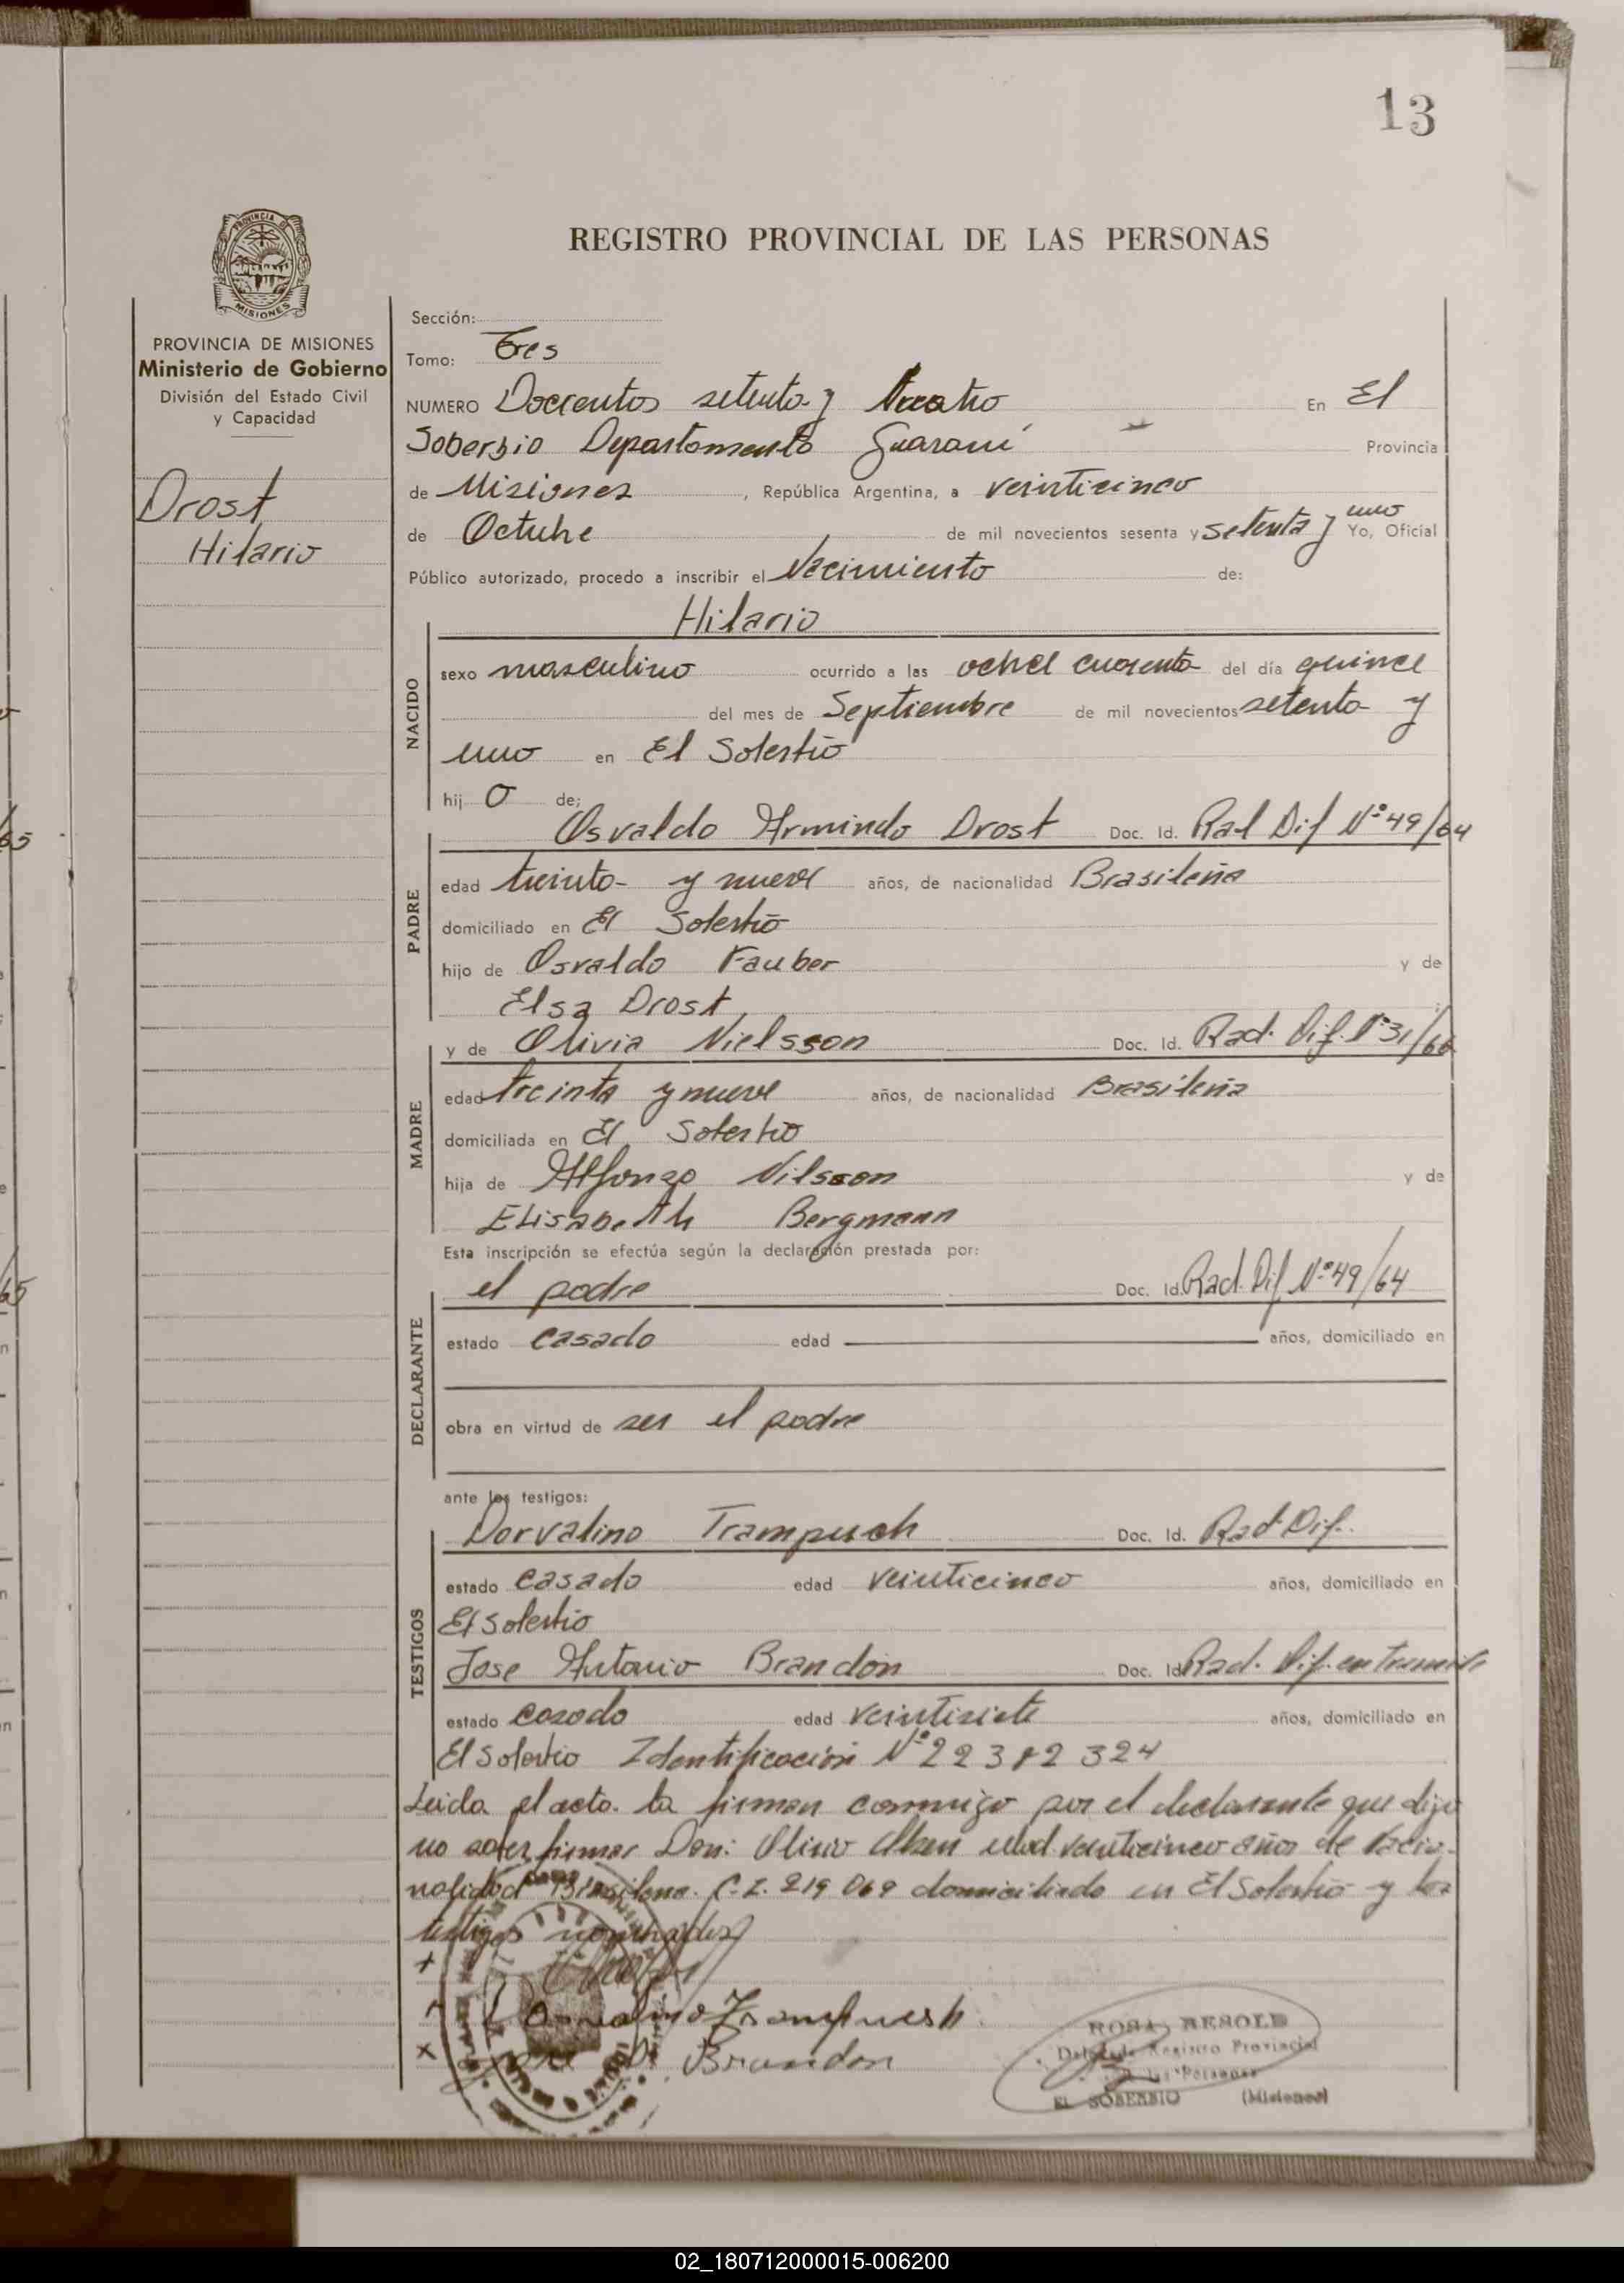 13
REGISTRO PROVINCIAL DE LAS PERSONAS
PROVINCIA DE
MISIONES
PROVINCIA DE MISIONES
Ministerio de Gobierno
División del Estado Civil
y Capacidad
Drost
Hilario
Sección:
Tomo: Tres
NUMERO Doscientos setenta y Cuatro En El
Soberbio Departamento Guaraní Provincia
de Misiones, República Argentina, a veinticinco
de Octubre de mil novecientos sesenta y setenta y uno Yo, Oficial
Público autorizado, procedo a inscribir el Nacimiento de:
Hilario
NACIDO
sexo masculino ocurrido a las ocho cuarenta del día quince
del mes de Septiembre de mil novecientos setenta y
uno en El Soberbio
hij o de;
PADRE
Osvaldo Armindo Drost Doc. Id. Rad Dif Nº 49/64
edad treinta y nueve años, de nacionalidad Brasileña
domiciliado en El Soberbio
hijo de Osvaldo Fauber y de
Elsa Drost
MADRE
y de Olivia Nielsson Doc. Id. Rad. Dif. Nº 31/66
edad treinta y nueve años, de nacionalidad Brasileña
domiciliada en El Soberbio
hija de Alfonzo Nilsson y de
Elisabeth Bergmann
Esta inscripción se efectúa según la declaración prestada por:
DECLARANTE
el padre Doc. Id. Rad. Dif Nº 49/64
estado casado edad años, domiciliado en
obra en virtud de ser el padre
ante los testigos:
TESTIGOS
Dorvalino Trampusch Doc. Id. Rad Dif.
estado casado edad veinticinco años, domiciliado en
El Soberbio
Jose Antonio Brandon Doc. Id. Rad. Dif. en tramite
estado casado edad veintisiete años, domiciliado en
El Soberbio Identificación Nº
Leida el acta la firman conmigo por el declarante que dijo
no saber firmar Don: Olivio edad veinticinco años de Nacio-
nalidad Brasilena. C.I. 219 069 domiciliado en El Soberbio y los
testigos nombrados
Dorvalino Trampuesh
Jose A. Brandon
ROSA RESOLD
Delegada Registro Provincial
de las Personas
EL SOBERBIO (Misiones)
02_180712000015-006200